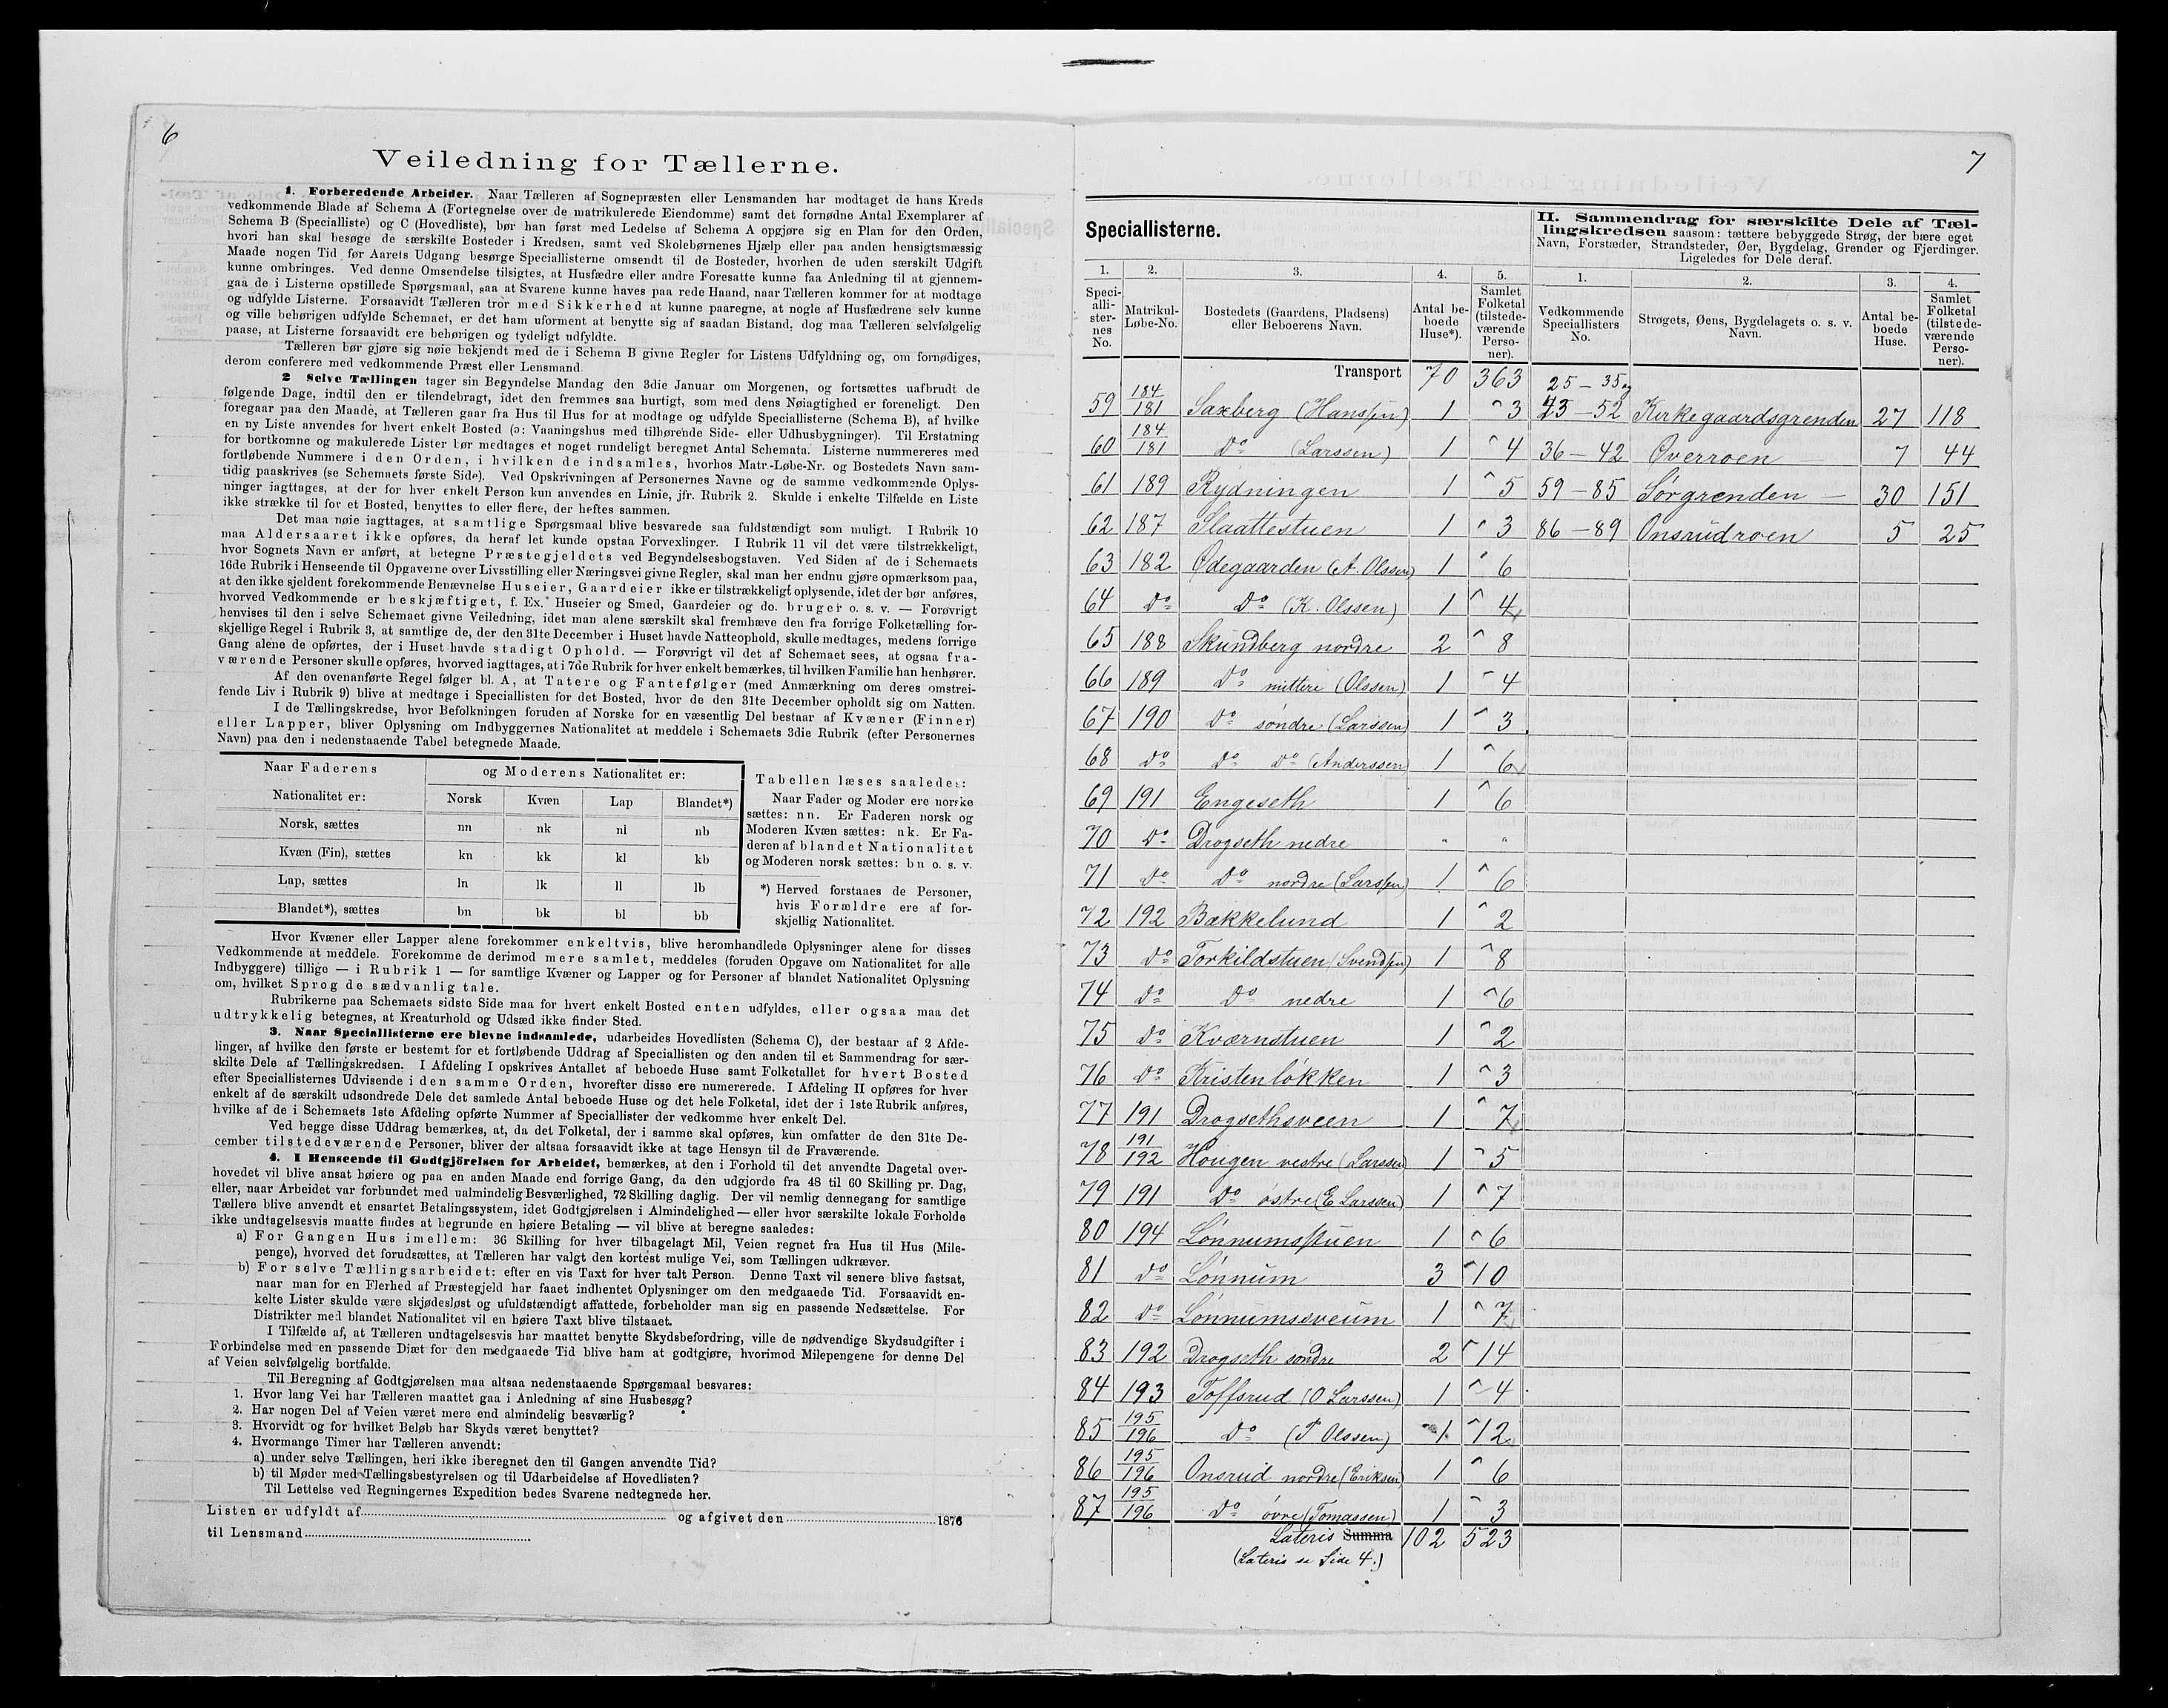 6
Veiledning for Tællerne.
1. Forberedende Arbeider. Naar Tælleren af Sognepræsten eller Lensmanden har modtaget de hans Kreds
vedkommende Blade af Schema A (Fortegnelse over de matrikulerede Eiendomme) samt det fornødne Antal Exemplarer af
Schema B (Specialliste) og C (Hovedliste), bør han først med Ledelse af Schema A opgjøre sig en Plan for den Orden,
hvori han skal besøge de særskilte Bosteder i Kredsen, samt ved Skolebørnenes Hjælp eller paa anden hensigtsmæssig
Maade nogen Tid før Aarets Udgang besørge Speciallisterne omsendt til de Bosteder, hvorhen de uden særskilt Udgift
kunne ombringes. Ved denne Omsendelse tilsigtes, at Husfædre eller andre Foresatte kunne faa Anledning til at gjennem-
gaa de i Listerne opstillede Spørgsmaal, saa at Svarene kunne haves paa rede Haand, naar Tælleren kommer for at modtage
og udfylde Listerne. Forsaavidt Tælleren tror med Sikkerhed at kunne paaregne, at nogle af Husfædrene selv kunne
og ville behørigen udfylde Schemaet, er det ham uforment at benytte sig af saadan Bistand, dog maa Tælleren selvfølgelig
paase, at Listerne forsaavidt ere behørigen og tydeligt udfyldte.
Tælleren bør gjøre sig nøie bekjendt med de i Schema B givne Regler for Listens Udfyldning og, om fornødiges,
derom conferere med vedkommende Præst eller Lensmand
2 Selve Tællingen tager sin Begyndelse Mandag den 3die Januar om Morgenen, og fortsættes uafbrudt de
følgende Dage, indtil den er tilendebragt, idet den fremmes saa hurtigt, som med dens Nøiagtighed er foreneligt. Den
foregaar paa den Maade, at Tælleren gaar fra Hus til Hus for at modtage og udfylde Speciallisterne (Schema B), af hvilke
en ny Liste anvendes for hvert enkelt Bosted (ɔ: Vaaningshus med tilhørende Side- eller Udhusbygninger). Til Erstatning
for bortkomne og makulerede Lister bør medtages et noget rundeligt beregnet Antal Schemata. Listerne nummereres med
fortløbende Nummere i den Orden, i hvilken de indsamles, hvorhos Matr.-Løbe-Nr. og Bostedets Navn sam-
tidig paaskrives (se Schemaets første Side). Ved Opskrivningen af Personernes Navne og de samme vedkommende Oplys-
ninger iagttages, at der for hver enkelt Person kun anvendes en Linie, jfr. Rubrik 2. Skulde i enkelte Tilfælde en Liste
ikke strække til for et Bosted, benyttes to eller flere, der heftes sammen.
Det maa nøie iagttages, at samtlige Spørgsmaal blive besvarede saa fuldstændigt som muligt. I Rubrik 10
maa Aldersaaret ikke opføres, da heraf let kunde opstaa Forvexlinger. I Rubrik 11 vil det være tilstrækkeligt,
hvor Sognets Navn er anført, at betegne Præstegjeldets ved Begyndelsesbogstaven. Ved Siden af de i Schemaets
16de Rubrik i Henseende til Opgaverne over Livsstilling eller Næringsvei givne Regler, skal man her endnu gjøre opmærksom paa,
at den ikke sjeldent forekommende Benævnelse Huseier, Gaardeier ikke er tilstrækkeligt oplysende, idet der bør anføres,
hvorved Vedkommende er beskjæftiget, f. Ex. Huseier og Smed, Gaardeier og do. bruger o. s. v. — Forøvrigt
henvises til den i selve Schemaet givne Veiledning, idet man alene særskilt skal fremhæve den fra forrige Folketælling for-
skjellige Regel i Rubrik 3, at samtlige de, der den 31te December i Huset havde Natteophold, skulle medtages, medens forrige
Gang alene de opførtes, der i Huset havde stadigt Ophold. — Forøvrigt vil det af Schemaet sees, at ogsaa fra-
værende Personer skulle opføres, hvorved iagttages, at i 7de Rubrik for hver enkelt bemærkes, til hvilken Familie han henhører.
Af den ovenanførte Regel følger bl. A, at Tatere og Fantefølger (med Anmærkning om deres omstrei-
fende Liv i Rubrik 9) blive at medtage i Speciallisten for det Bosted, hvor de den 31te December opholdt sig om Natten.
I de Tællingskredse, hvor Befolkningen foruden af Norske for en væsentlig Del bestaar af Kvæner (Finner)
eller Lapper, bliver Oplysning om Indbyggernes Nationalitet at meddele i Schemaets 3die Rubrik (efter Personernes
Navn) paa den i nedenstaaende Tabel betegnede Maade.
Naar Faderens Nationalitet er: og Moderens Nationalitet er:
Norsk Kvæn Lap Blandet*)
Norsk, sættes nn nk nl nb
Kvæn (Fin), sættes kn kk kl kb
Lap, sættes ln lk ll lb
Blandet*), sættes bn bk bl bb
Tabellen læses saaledes:
Naar Fader og Moder ere norske
sættes: nn. Er Faderen norsk og
Moderen Kvæn sættes: nk. Er Fa-
deren af blandet Nationalitet
og Moderen norsk sættes: bn o. s. v.
*) Herved forstaaes de Personer,
hvis Forældre ere af for-
skjellig Nationalitet.
Hvor Kvæner eller Lapper alene forekommer enkeltvis, blive heromhandlede Oplysninger alene for disses
Vedkommende at meddele. Forekomme de derimod mere samlet, meddeles (foruden Opgave om Nationalitet for alle
Indbyggere) tillige — i Rubrik 1 — for samtlige Kvæner og Lapper og for Personer af blandet Nationalitet Oplysning
om, hvilket Sprog de sædvanlig tale.
Rubrikerne paa Schemaets sidste Side maa for hvert enkelt Bosted enten udfyldes, eller ogsaa maa det
udtrykkelig betegnes, at Kreaturhold og Udsæd ikke finder Sted.
3. Naar Speciallisterne ere blevne indsamlede, udarbeides Hovedlisten (Schema C), der bestaar af 2 Afde-
linger, af hvilke den første er bestemt for et fortløbende Uddrag af Speciallisten og den anden til et Sammendrag for sær-
skilte Dele af Tællingskredsen. I Afdeling I opskrives Antallet af beboede Huse samt Folketallet for hvert Bosted
efter Speciallisternes Udvisende i den samme Orden, hvorefter disse ere numererede. I Afdeling II opføres for hver
enkelt af de særskilt udsondrede Dele det samlede Antal beboede Huse og det hele Folketal, idet der i 1ste Rubrik anføres,
hvilke af de i Schemaets 1ste Afdeling opførte Nummer af Speciallister der vedkomme hver enkelt Del.
Ved begge disse Uddrag bemærkes, at, da det Folketal, der i samme skal opføres, kun omfatter de den 31te De-
cember tilstedeværende Personer, bliver der altsaa forsaavidt ikke at tage Hensyn til de Fraværende.
4. I Henseende til Godtgjörelsen for Arbeidet, bemærkes, at den i Forhold til det anvendte Dagetal over-
hovedet vil blive ansat høiere og paa en anden Maade end forrige Gang, da den udgjorde fra 48 til 60 Skilling pr. Dag,
eller, naar Arbeidet var forbundet med ualmindelig Besværlighed, 72 Skilling daglig. Der vil nemlig dennegang for samtlige
Tællere blive anvendt et ensartet Betalingssystem, idet Godtgjørelsen i Almindelighed — eller hvor særskilte lokale Forholde
ikke undtagelsesvis maatte findes at begrunde en høiere Betaling — vil blive at beregne saaledes:
a) For Gangen Hus imellem: 36 Skilling for hver tilbagelagt Mil, Veien regnet fra Hus til Hus (Mile-
penge), hvorved det forudsættes, at Tælleren har valgt den kortest mulige Vei, som Tællingen udkræver.
b) For selve Tællingsarbeidet: efter en vis Taxt for hver talt Person. Denne Taxt vil senere blive fastsat,
naar man for en Flerhed af Præstegjeld har faaet indhentet Oplysninger om den medgaaede Tid. Forsaavidt en-
kelte Lister skulde være skjødesløst og ufuldstændigt affattede, forbeholder man sig en passende Nedsættelse. For
Distrikter med blandet Nationalitet vil en høiere Taxt blive tilstaaet.
I Tilfælde af, at Tælleren undtagelsesvis har maattet benytte Skydsbefordring, ville de nødvendige Skydsudgifter i
Forbindelse med en passende Diæt for den medgaaede Tid blive ham at godtgjøre, hvorimod Milepengene for denne Del
af Veien selvfølgelig bortfalde.
Til Beregning af Godtgjørelsen maa altsaa nedenstaaende Spørgsmaal besvares:
1. Hvor lang Vei har Tælleren maattet gaa i Anledning af sine Husbesøg?
2. Har nogen Del af Veien været mere end almindelig besværlig?
3. Hvorvidt og for hvilket Beløb har Skyds været benyttet?
4. Hvormange Timer har Tælleren anvendt:
a) under selve Tællingen, heri ikke iberegnet den til Gangen anvendte Tid?
b) til Møder med Tællingsbestyrelsen og til Udarbeidelse af Hovedlisten?
Til Lettelse ved Regningernes Expedition bedes Svarene nedtegnede her.
Listen er udfyldt af og afgivet den 1876
til Lensmand
7
Speciallisterne.
II. Sammendrag for særskilte Dele af Tæl-
lingskredsen saasom: tættere bebyggede Strøg, der bære eget
Navn, Forstæder, Strandsteder, Øer, Bygdelag, Grender og Fjerdinger.
Ligeledes for Dele deraf.
1. 2. 3. 4. 5. 1. 2. 3. 4.
Speci-alli-ster-nes No. Matrikul-Løbe-No. Bostedets (Gaardens, Pladsens) eller Beboerens Navn. Antal be-boede Huse*). Samlet Folketal (tilstede-værende Perso-ner). Vedkommende Speciallisters No. Strøgets, Øens, Bygdelagets o. s. v. Navn. Antal be-boede Huse. Samlet Folketal (tilstede-værende Perso-ner).
Transport 70 363 25 – 35 og
59 184/181 Saxberg (Hanssen) 1 3 43 – 52 Kirkegaardsgrenden 27 118
60 184/181 Do (Larssen) 1 4 36 – 42 Overroen 7 44
61 189 Rydningen 1 5 59 – 85 Sørgrenden 30 151
62 187 Slaattestuen 1 3 86 – 89 Onsrudroen 5 25
63 182 Ødegaarden (A. Olssen) 1 6
64 Do Do (K. Olssen) 1 4
65 188 Skundberg nordre 2 8
66 189 Do mittere (Olssen) 1 4
67 190 Do söndre (Larssen) 1 3
68 Do Do Do (Anderssen) 1 6
69 191 Engeseth 1 6
70 Do Drogseth nedre " "
71 Do Do nordre (Larssen) 1 6
72 192 Bækkelund 1 2
73 Do Torkildstuen (Svendsen) 1 8
74 Do Do nedre 1 6
75 Do Kværnstuen 1 2
76 Do Kristenlökken 1 3
77 191 Drogsethsveen 1 7
78 191/192 Hougen vestre (Larssen) 1 5
79 191 Do östre (E Larssen) 1 7
80 194 Lönnumsstuen 1 6
81 Do Lönnum 3 10
82 Do Lönnumssveum 1 7
83 192 Drogseth söndre 2 14
84 193 Toffsrud (O Larssen) 1 4
85 195/196 Do (P Olssen) 1 12
86 195/196 Onsrud nordre (Eriksen) 1 6
87 195/196 Do övre (Tomassen) 1 3
Lateris Summa 102 523
(Lateris se Side 4.)